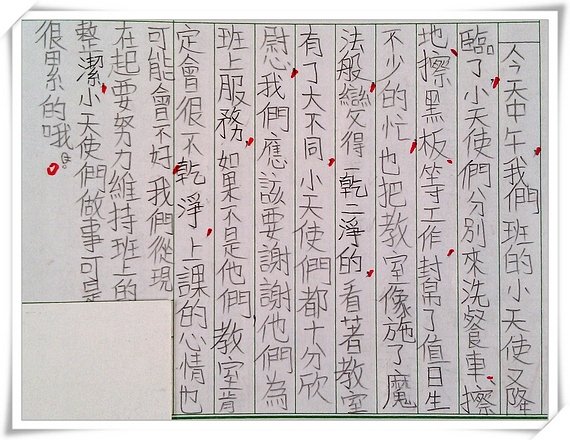 今天中午,我們班的小天使又降
臨了,小天使們分別來洗餐車、擦
地、擦黑板等工作,幫了值日生
不少的忙,也把教室像施了魔
法般,變得一乾二淨的,看著教室
有了大不同,小天使們都十分欣
慰,我們應該要謝謝他們為
班上服務,如果不是他們,教室肯
定會很不乾淨,上課的心情也
可能會不好,我們從現
在起要努力維持班上的
整潔,小天使們做事可是
很累的哦。